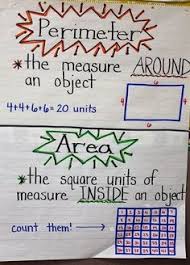 Perimeter
*the measure AROUND
an object
4+4+6+6=20 units
6
4
4
6
Area
*the square units of
measure INSIDE an object
count them!